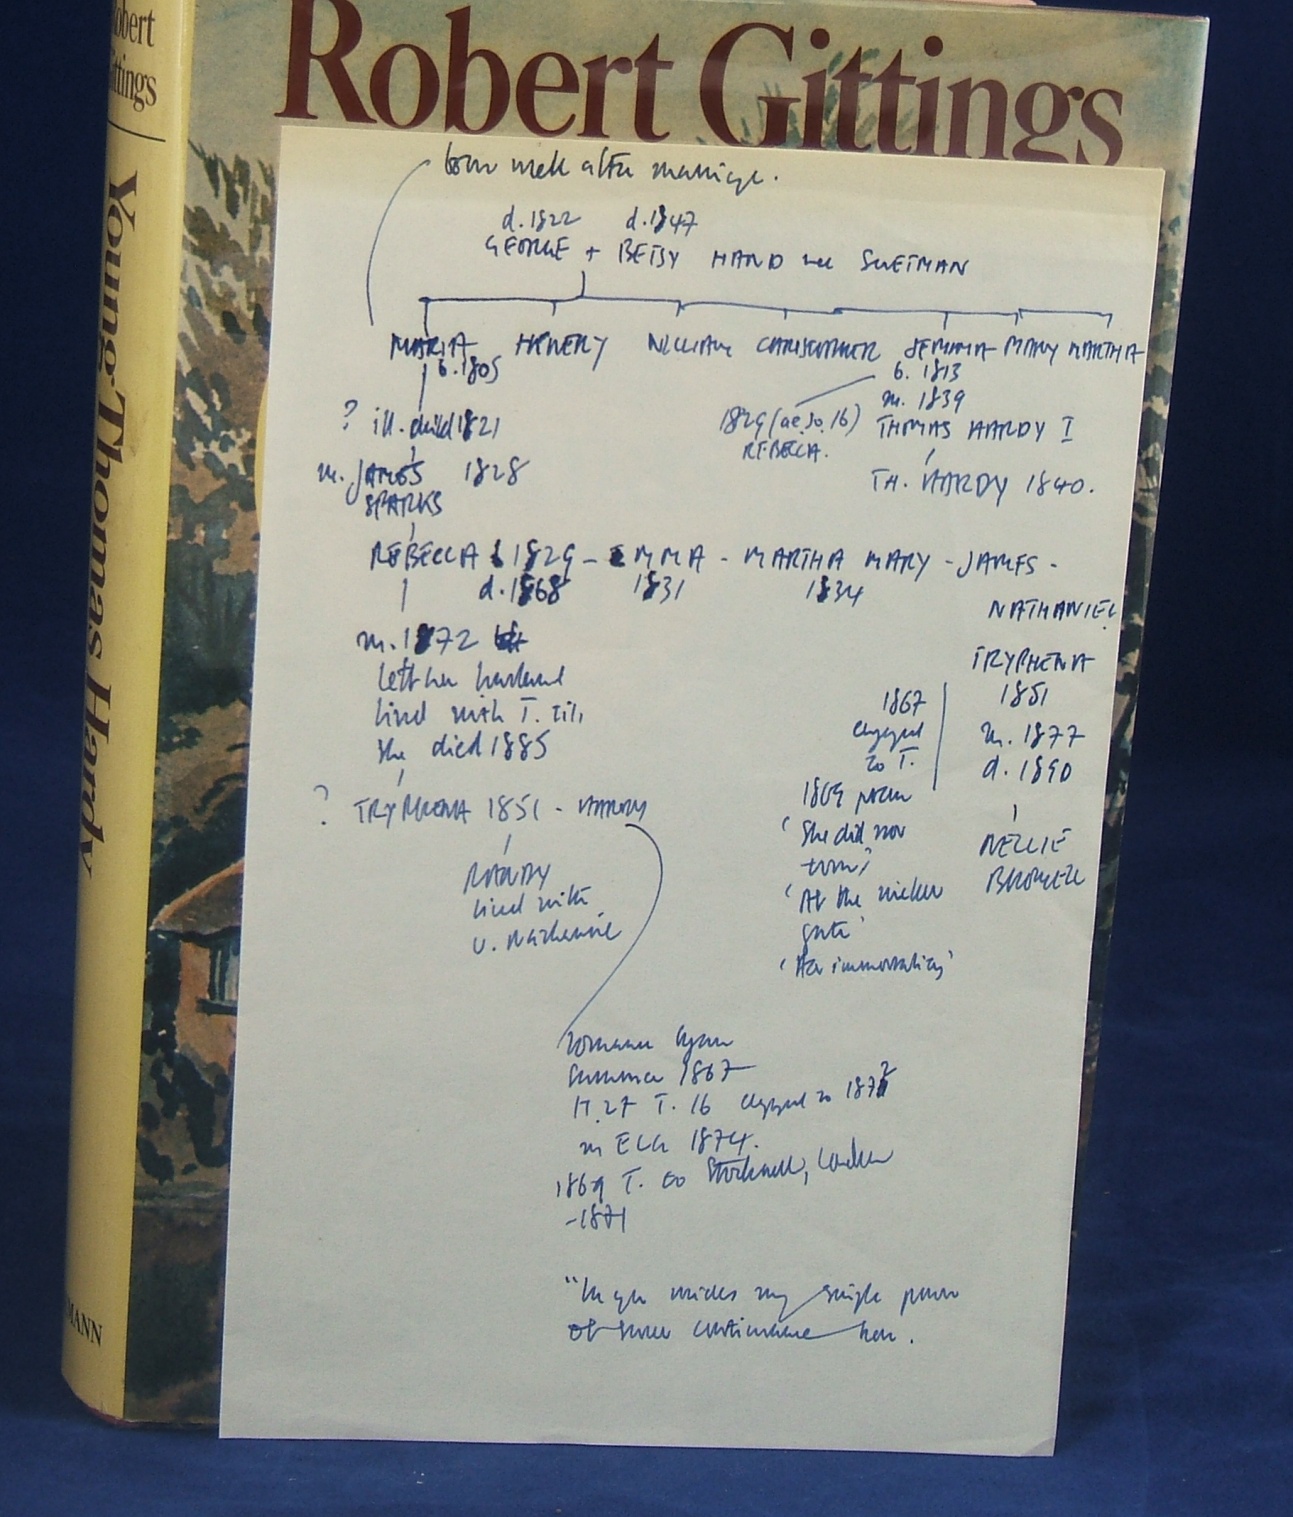 Robert Gittings
Robert
Gittings
Young Thomas Hardy
MANN
born well after marriage.
d. 1822 d. 1847
GEORGE + BETSY HAND nee SWETMAN
MARIA HENERY WILLIAM CHRISTOPHER JEMIMA MARY MARTHA
b. 1805
b. 1813
m. 1839
? ill. child 1821
1829 (ae. 16) THOMAS HARDY I
REBECCA.
m. JAMES 1828
SPARKS
TH. HARDY 1840.
REBECCA b 1829 - EMMA - MARTHA MARY - JAMES -
d. 1868 1831 1834
NATHANIEL
m. 1872
left her husband
lived with T. till
she died 1885
TRYPHENA
1851
m. 1877
d. 1890
NELLIE
BROMELL
1867
engaged
to T.
1869 poem
'She did not
turn'
'At the wicket
gate'
'Her immortality'
? TRYPHENA 1851 - HARDY
RANDY
lived with
u. Nathaniel
Summer 1867
H. 27 T. 16 engaged to 1872
m ELG 1874.
1869 T. to Stockwell, London
-1871
"In you resides my single power
of sweet continuance here.